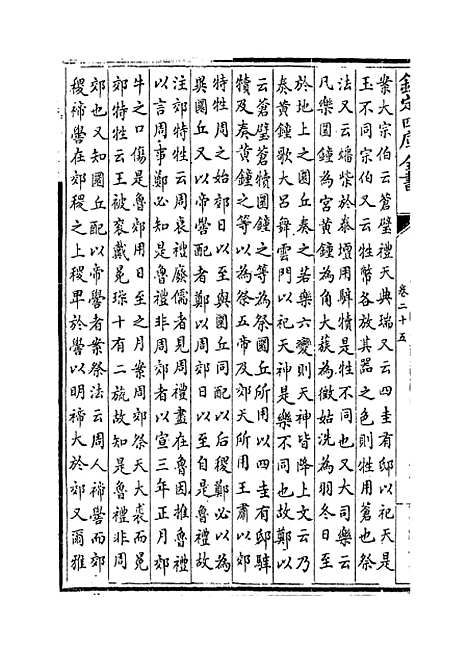 欽定四庫全書
卷二十五
案大宗伯云蒼璧禮天典瑞又云四圭有邸以祀天是
玉不同宗伯又云牲幣各放其器之色則牲用蒼也祭
法又云燔柴於泰壇用騂犢是牲不同也又大司樂云
凡樂圜鐘為宮黃鐘為角大蔟為徵姑洗為羽冬日至
於地上之圜丘奏之若樂六變則天神皆降上文云乃
奏黃鐘歌大呂舞雲門以祀天神是樂不同也故鄭以
云蒼璧蒼犢圜鐘之等為祭圜丘所用以四圭有邸騂
犢及奏黃鐘之等以為祭五帝及郊天所用王肅以郊
特牲周之始郊日以至與圜丘同配以后稷鄭必以為
異圜丘又以帝嚳配者鄭以周郊日以至自是魯禮故
注郊特牲云周衰禮廢儒者見周禮盡在魯因推魯禮
以言周事鄭必知是魯禮非周郊者以宣三年正月郊
牛之口傷是魯郊用日至之月案周郊祭天大裘而冕
郊特牲云王被袞戴冕璪十有二旒故知是魯禮非周
郊也又知圜丘配以帝嚳者案祭法云周人禘嚳而郊
稷禘嚳在郊稷之上稷卑於嚳以明禘大於郊又爾雅